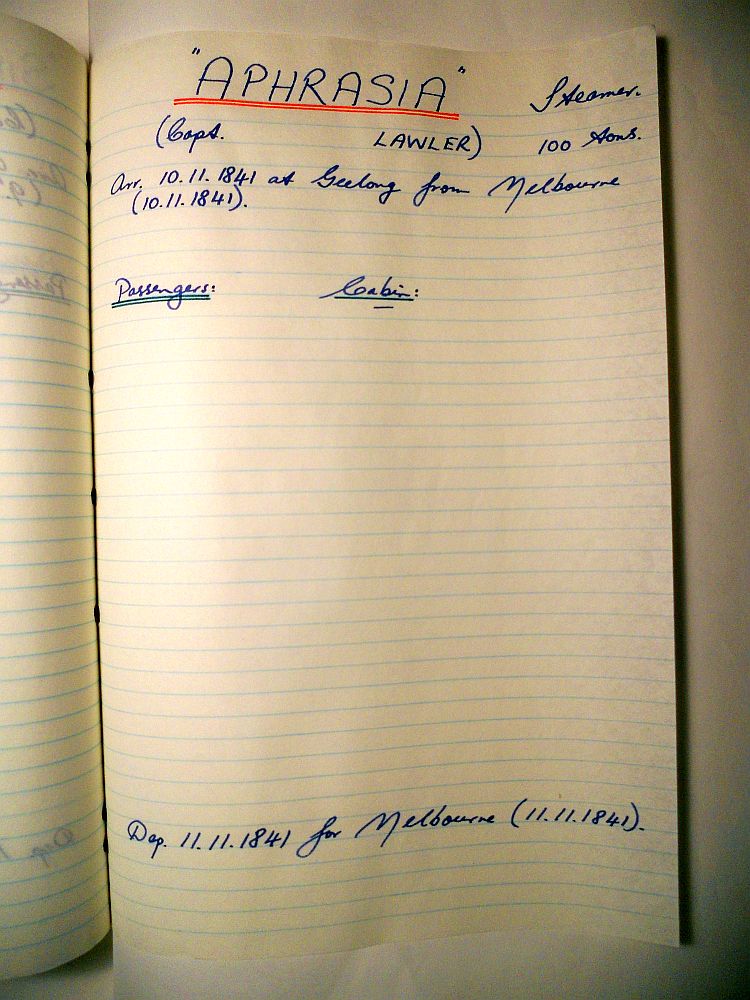 "APHRASIA" Steamer.
(Capt. LAWLER) 100 tons.
Arr. 10.11.1841 at Geelong from Melbourne
(10.11.1841).
Passengers: Cabin:
Dep. 11.11.1841 for Melbourne (11.11.1841).